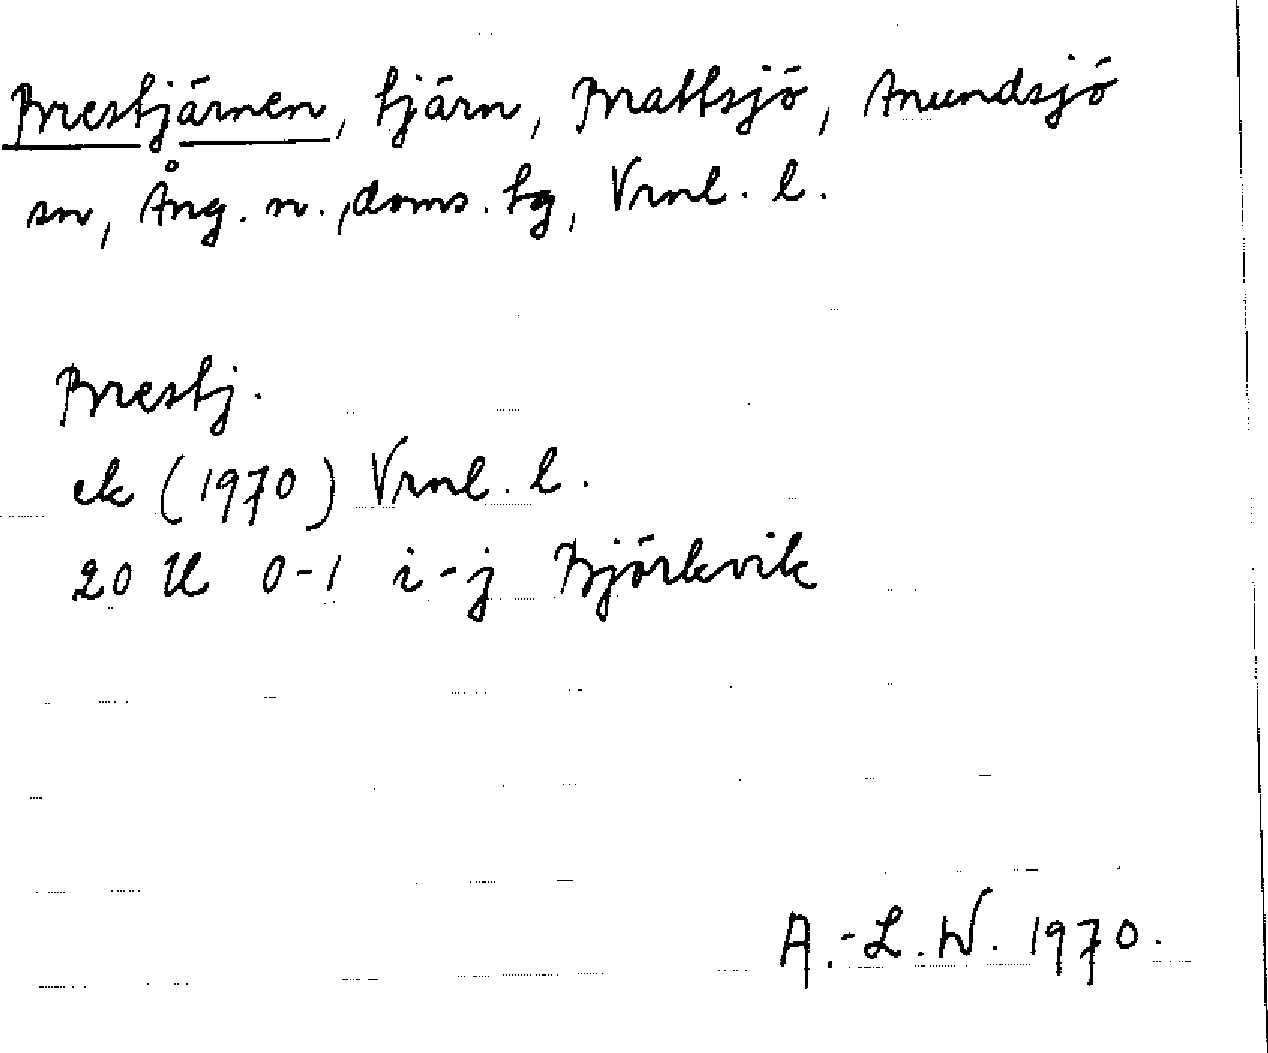 Brestjärnen, tjärn, Brattsjö, Anundsjö
sn, Ång. n., doms. tg, Vrnl. l.
Brestj.
ek (1970) Vrnl. l.
20 U 0-1 i-j Björkvik
A.-L. W. 1970.